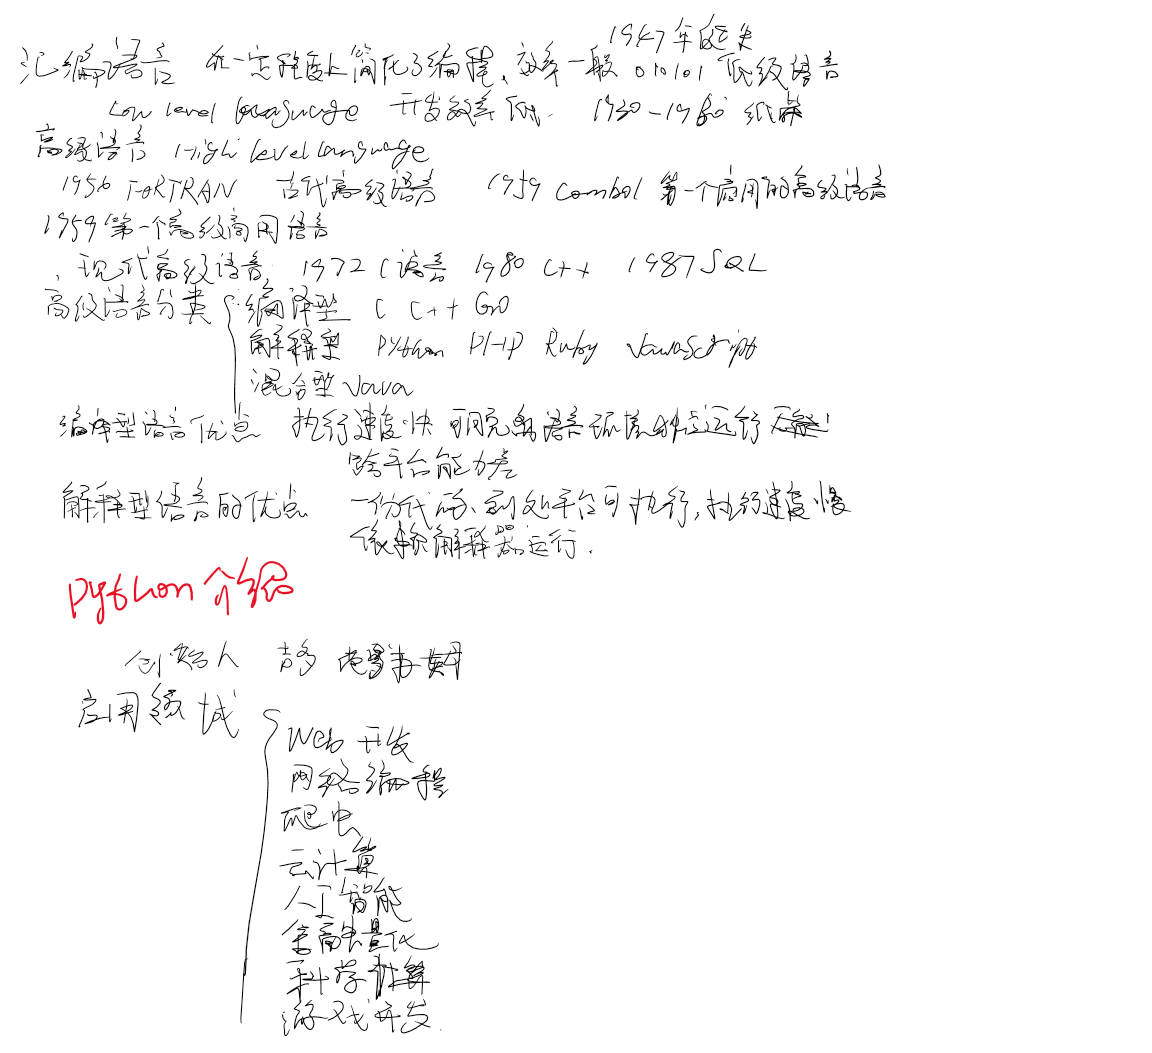 1947年诞生
汇编语言 在一定程度上简化了编程、效率一般 010101 低级语言
Low level language 开发效率低. 1930-1980
高级语言 High level language
1956 FORTRAN 古代高级语言 1959 Combol 第一个应用的高级语言
1959第一个高级商用语言
现代高级语言, 1972 C语言 1980 C++ 1987 SQL
高级语言分类 编译型 C C++ GO
解释型 Python PHP Ruby JavaScript
混合型 Java
编译型语言优点 执行速度快 可脱离语言环境独立运行
跨平台能力差
解释型语言的优点 一份代码、到处平台可执行, 执行速度慢
依赖解释器运行.
Python 介绍
创始人 吉多
应用领域
Web 开发
网络编程
爬虫
云计算
人工智能
金融量化
科学计算
游戏开发.